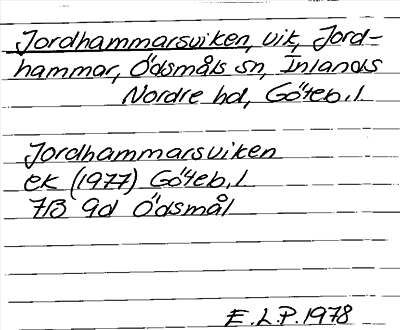 Jordhammarsviken, vik, Jord-
hammar, Ödsmåls sn, Inlands
Nordre hd, Göteb. l.
Jordhammarsviken
ek (1977) Göteb. l
7B 9d Ödsmål
E.L.P. 1978